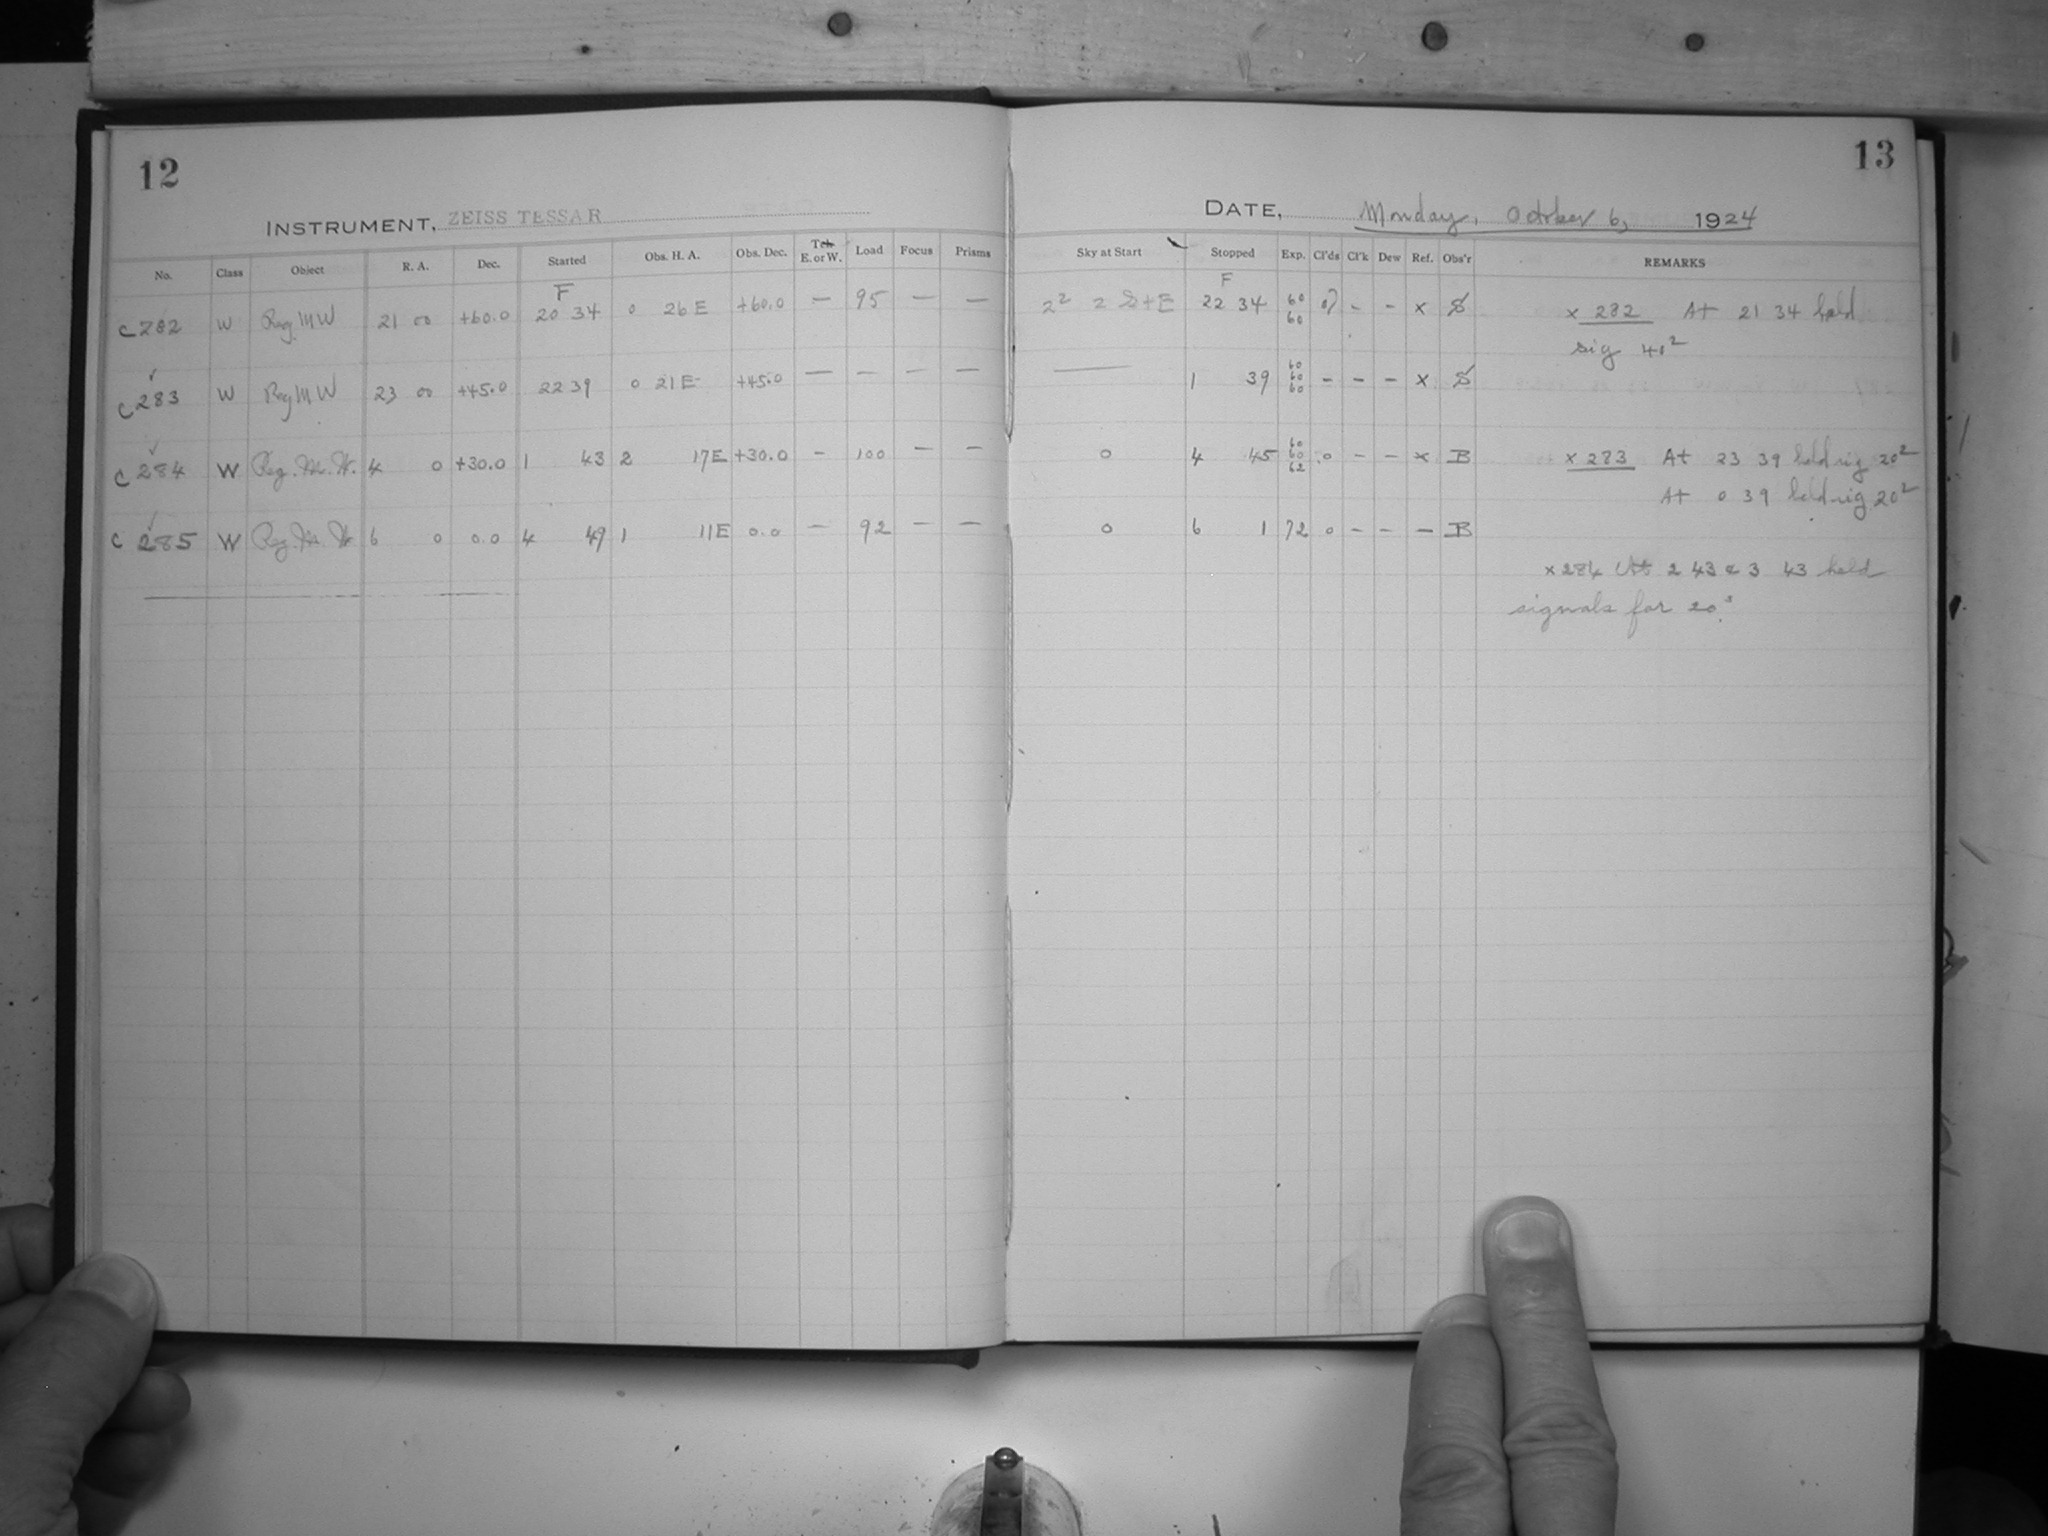 12
INSTRUMENT, ZEISS TESSAR
No. Class Object R. A. Dec. Started Obs. H. A. Obs. Dec. E. or W. Load Focus Prisms
F
C 282 W Reg M W 21 00 +60.0 20 34 0 26 E +60.0 — 95 — —
C 283 W Reg M W 23 00 +45.0 22 39 0 21 E +45.0 — — — —
C 284 W Reg. M. W. 4 0 +30.0 1 43 2 17 E +30.0 — 100 — —
C 285 W Reg. M. W 6 0 0.0 4 49 1 11 E 0.0 — 92 — —
13
DATE, Monday, October 6, 1924
Sky at Start Stopped Exp. Cl'ds Cl'k Dew Ref. Obs'r REMARKS
F
2² 2 S+E 22 34 60 - - x S
60
— 1 39 60 - - - x S
60
60
0 4 45 60 0 - - x B
60
62
0 6 1 72 0 - - - B
x 282 At 21 34 held
sig 40²
x 283 At 23 39 held sig 20²
At 0 39 held sig 20²
x 284 At 2 43 & 3 43 held
signals for 20ˢ.